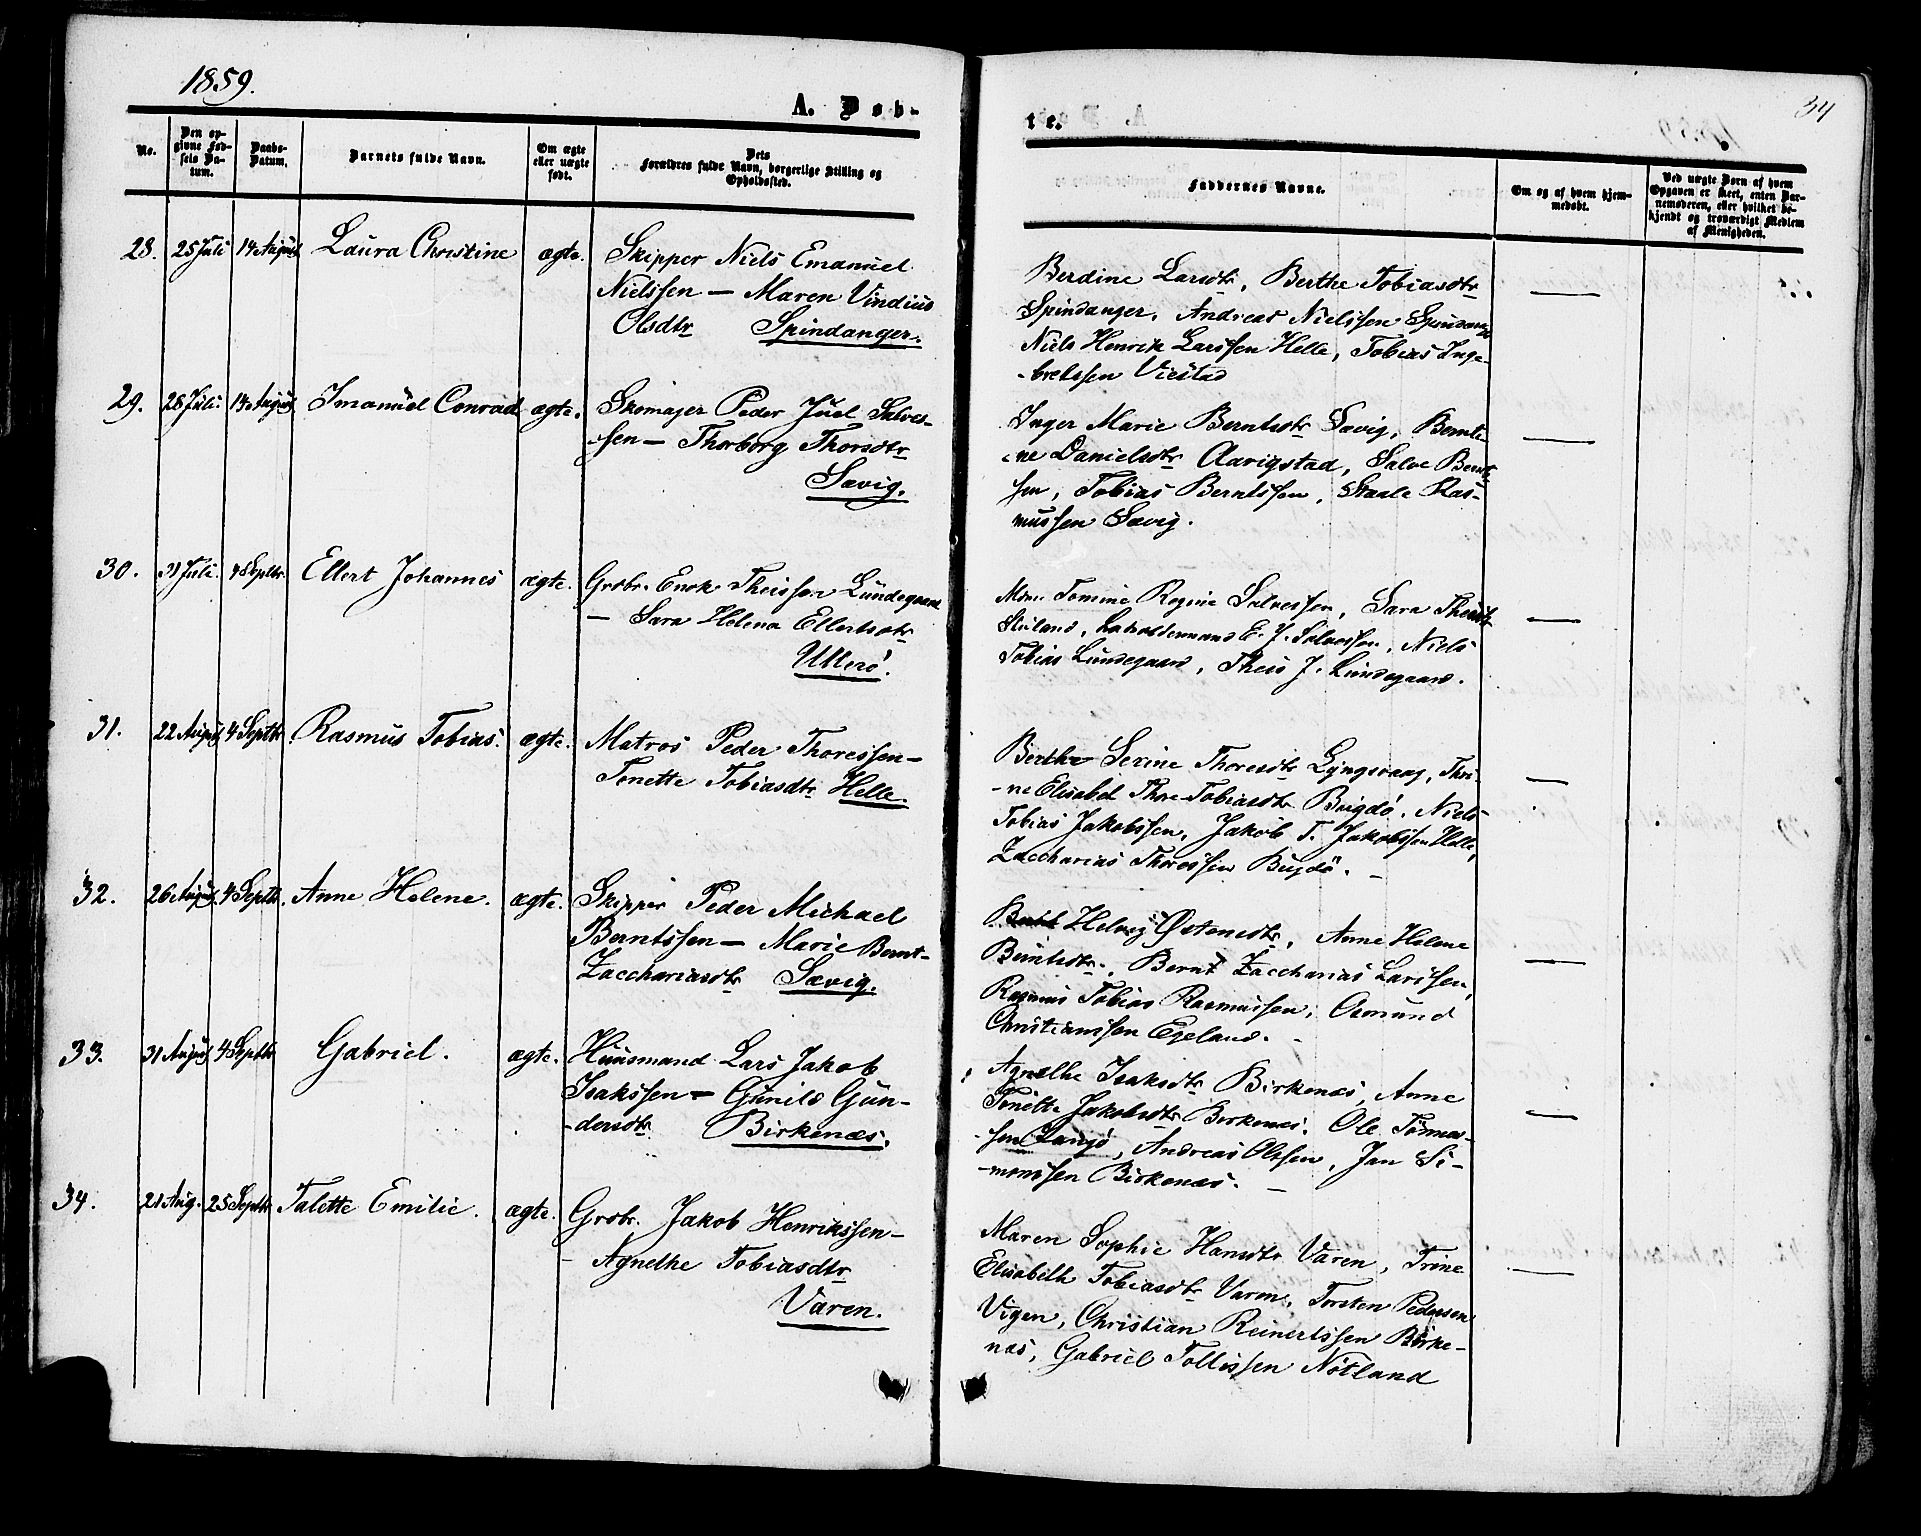 1859.
34
A. Døb-
te.
No.
Den op-
givne Fød-
sels Da-
tum.
Daabs-
Datum.
Barnets fulde Navn.
Om ægte
eller uægte
født.
Dets
Forældres fulde Navn, borgerlige Stilling og
Opholdssted.
Faddernes Navne.
Om og af hvem hjem-
medøbt.
Ved uægte Børn af hvem
Opgaven er skeet, enten Bar-
nemoderen, eller hvilket be-
kjendt og troværdigt Medlem
af Menigheden.
28. 25 Juli 14 August Laura Christine ægte. Skipper Niels Emanuel
Nielssen — Maren Vindius
Olsdtr Spindanger.
Berdine Larsdtr, Berthe Tobiasdtr
Spindanger, Andreas Nielssen Spindanger
Niels Henrik Larssen Helle, Tobias Inge-
-bretssen Viestad
29. 28 Juli. 14 August Imanuel Conrad ægte. Skomager Peder Juel Salves-
sen — Thorborg Thorsdtr
Sævig.
Inger Marie Berntsdtr Sævig, Bernti-
-ne Danielsdtr Aarigstad, Salve Bernt-
sen, Tobias Berntssen, Staale Ras-
mussen Sævig.
30. 31 Juli. 4 Septbr. Ellert Johannes ægte. Grdbr. Enok Theissen Lundegaard
— Sara Helena Ellertsdtr
Ullerø.
Tomine Regine Salvessen, Sara Theisdtr
E. J. Salvessen, Niels
Tobias Lundegaard, Theis J. Lundegaard.
31. 22 August 4 Septbr. Rasmus Tobias. ægte. Matros Peder Thoressen —
Tonette Tobiasdtr Helle.
Berthe Serine Thoresdtr Lyngsvaag, Thri-
-ne Elisabet Thore Tobiasdtr Bugdø, Niels
Tobias Jakobssen, Jakob T. Jakobssen Helle,
Zaccharias Thoressen Bugdø. —
32. 26 August 4 Septbr. Anne Helene. ægte. Skipper Peder Michael
Berntssen — Marie Bernt-
Zacchariasdtr Sævig.
Helvig Østensdtr, Anne Helene
Berntsdtr, Bernt Zaccharias Larssen,
Rasmus Tobias Rasmussen, Osmund
Christianssen Egeland. —
33. 31 August 4 Septbr Gabriel. ægte. Huusmand Lars Jakob
Isakssen — Gunild Gun-
-dersdtr Birkenæs.
Agnethe Isaksdtr Birkenæs, Anne
Tonette Jakobsdtr Birkenæs, Ole Tønnes-
-sen Langø, Andreas Olssen, Jan Si-
-monssen Birkenæs. —
34. 21 Aug. 25 Septbr Talette Emilie. ægte. Grdbr. Jakob Henrikssen —
— Agnethe Tobiasdtr
Varen.
Maren Sophie Hansdtr Varen, Trine
Elisabeth Tobiasdtr Varen, Torsten Pedersen
Vigen, Christian Reinertssen Birke-
næs, Gabriel Tollissen Nøtland